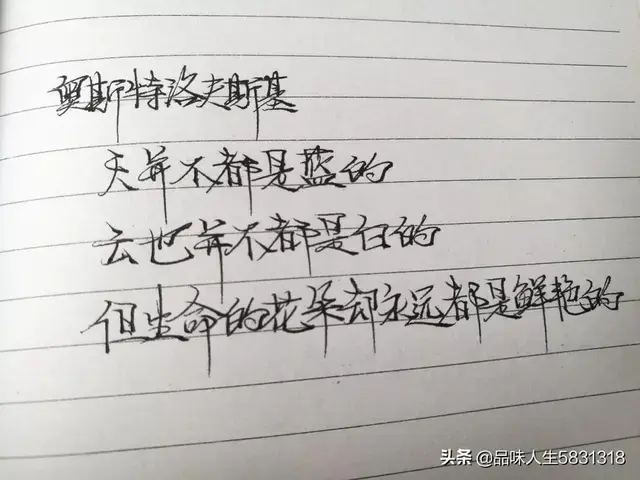 奥斯特洛夫斯基
天并不都是蓝的
云也并不都是白的
但生命的花朵却永远都是鲜艳的
头条 @品味人生5831318